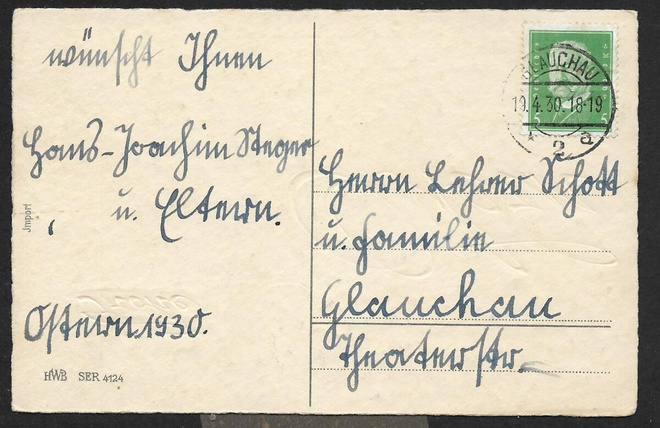 wünscht Ihnen
Hans-Joachim Steger
u. Eltern.
Ostern 1930.
Import
HWB SER 4124
GLAUCHAU
19.4.30.18-19
* 2 a
5 5
Herrn Lehrer Schott
u. Familie
Glauchau
Theaterstr.